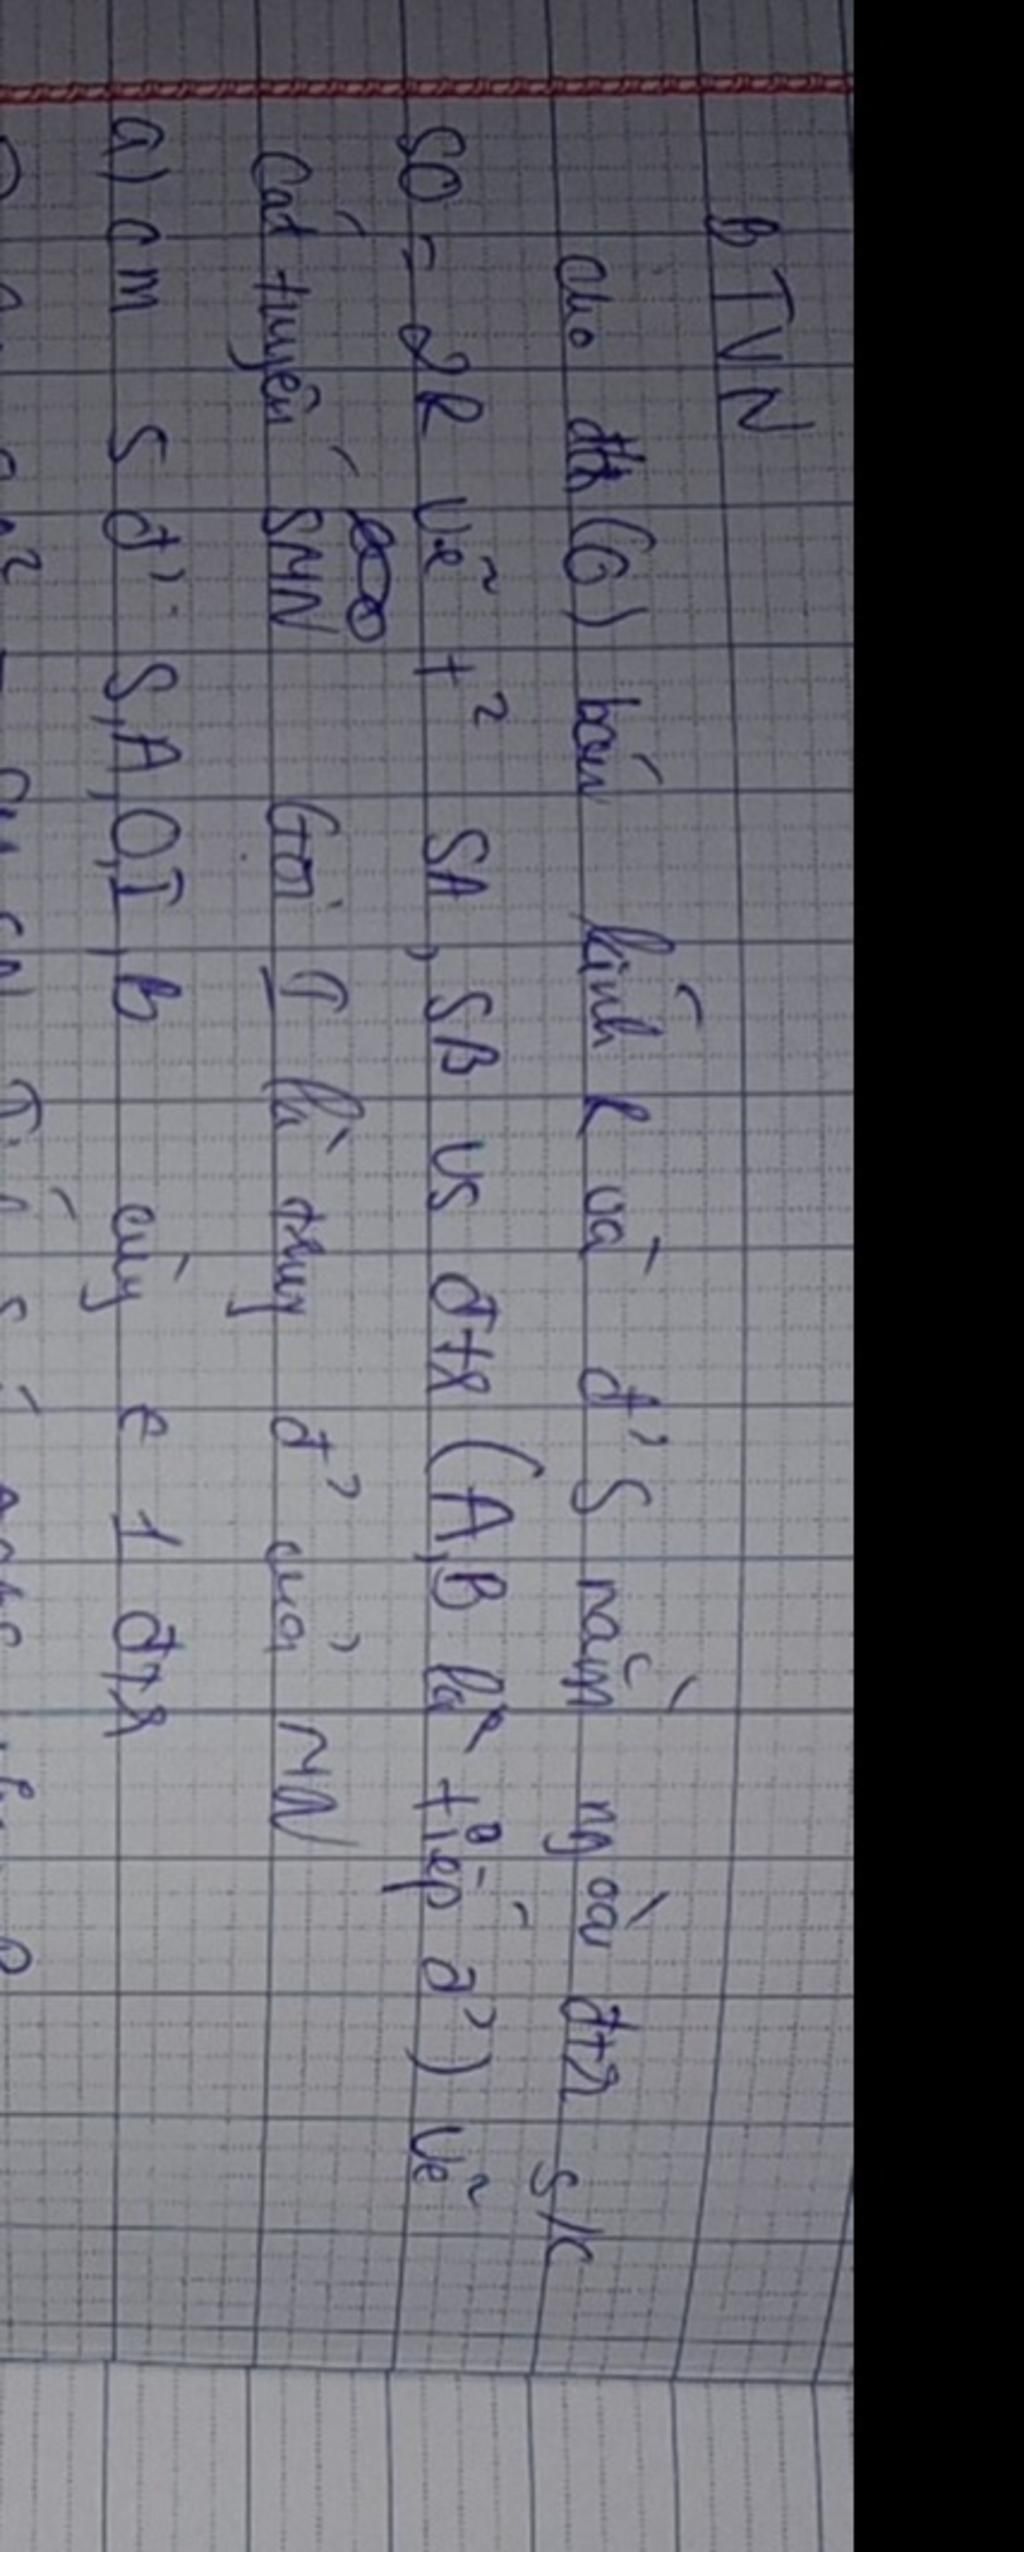 BTVN
Cho đtr (O) bán kính R và đ' S nằm ngoài đtr s/c
SO = 2R vẽ t² SA, SB vs đtr (A,B là tiếp đ') vẽ
Cát tuyến SMN Gọi I là trung đ' của MN
a) cm 5 đ' S,A,O,I,B cùng € 1 đtr